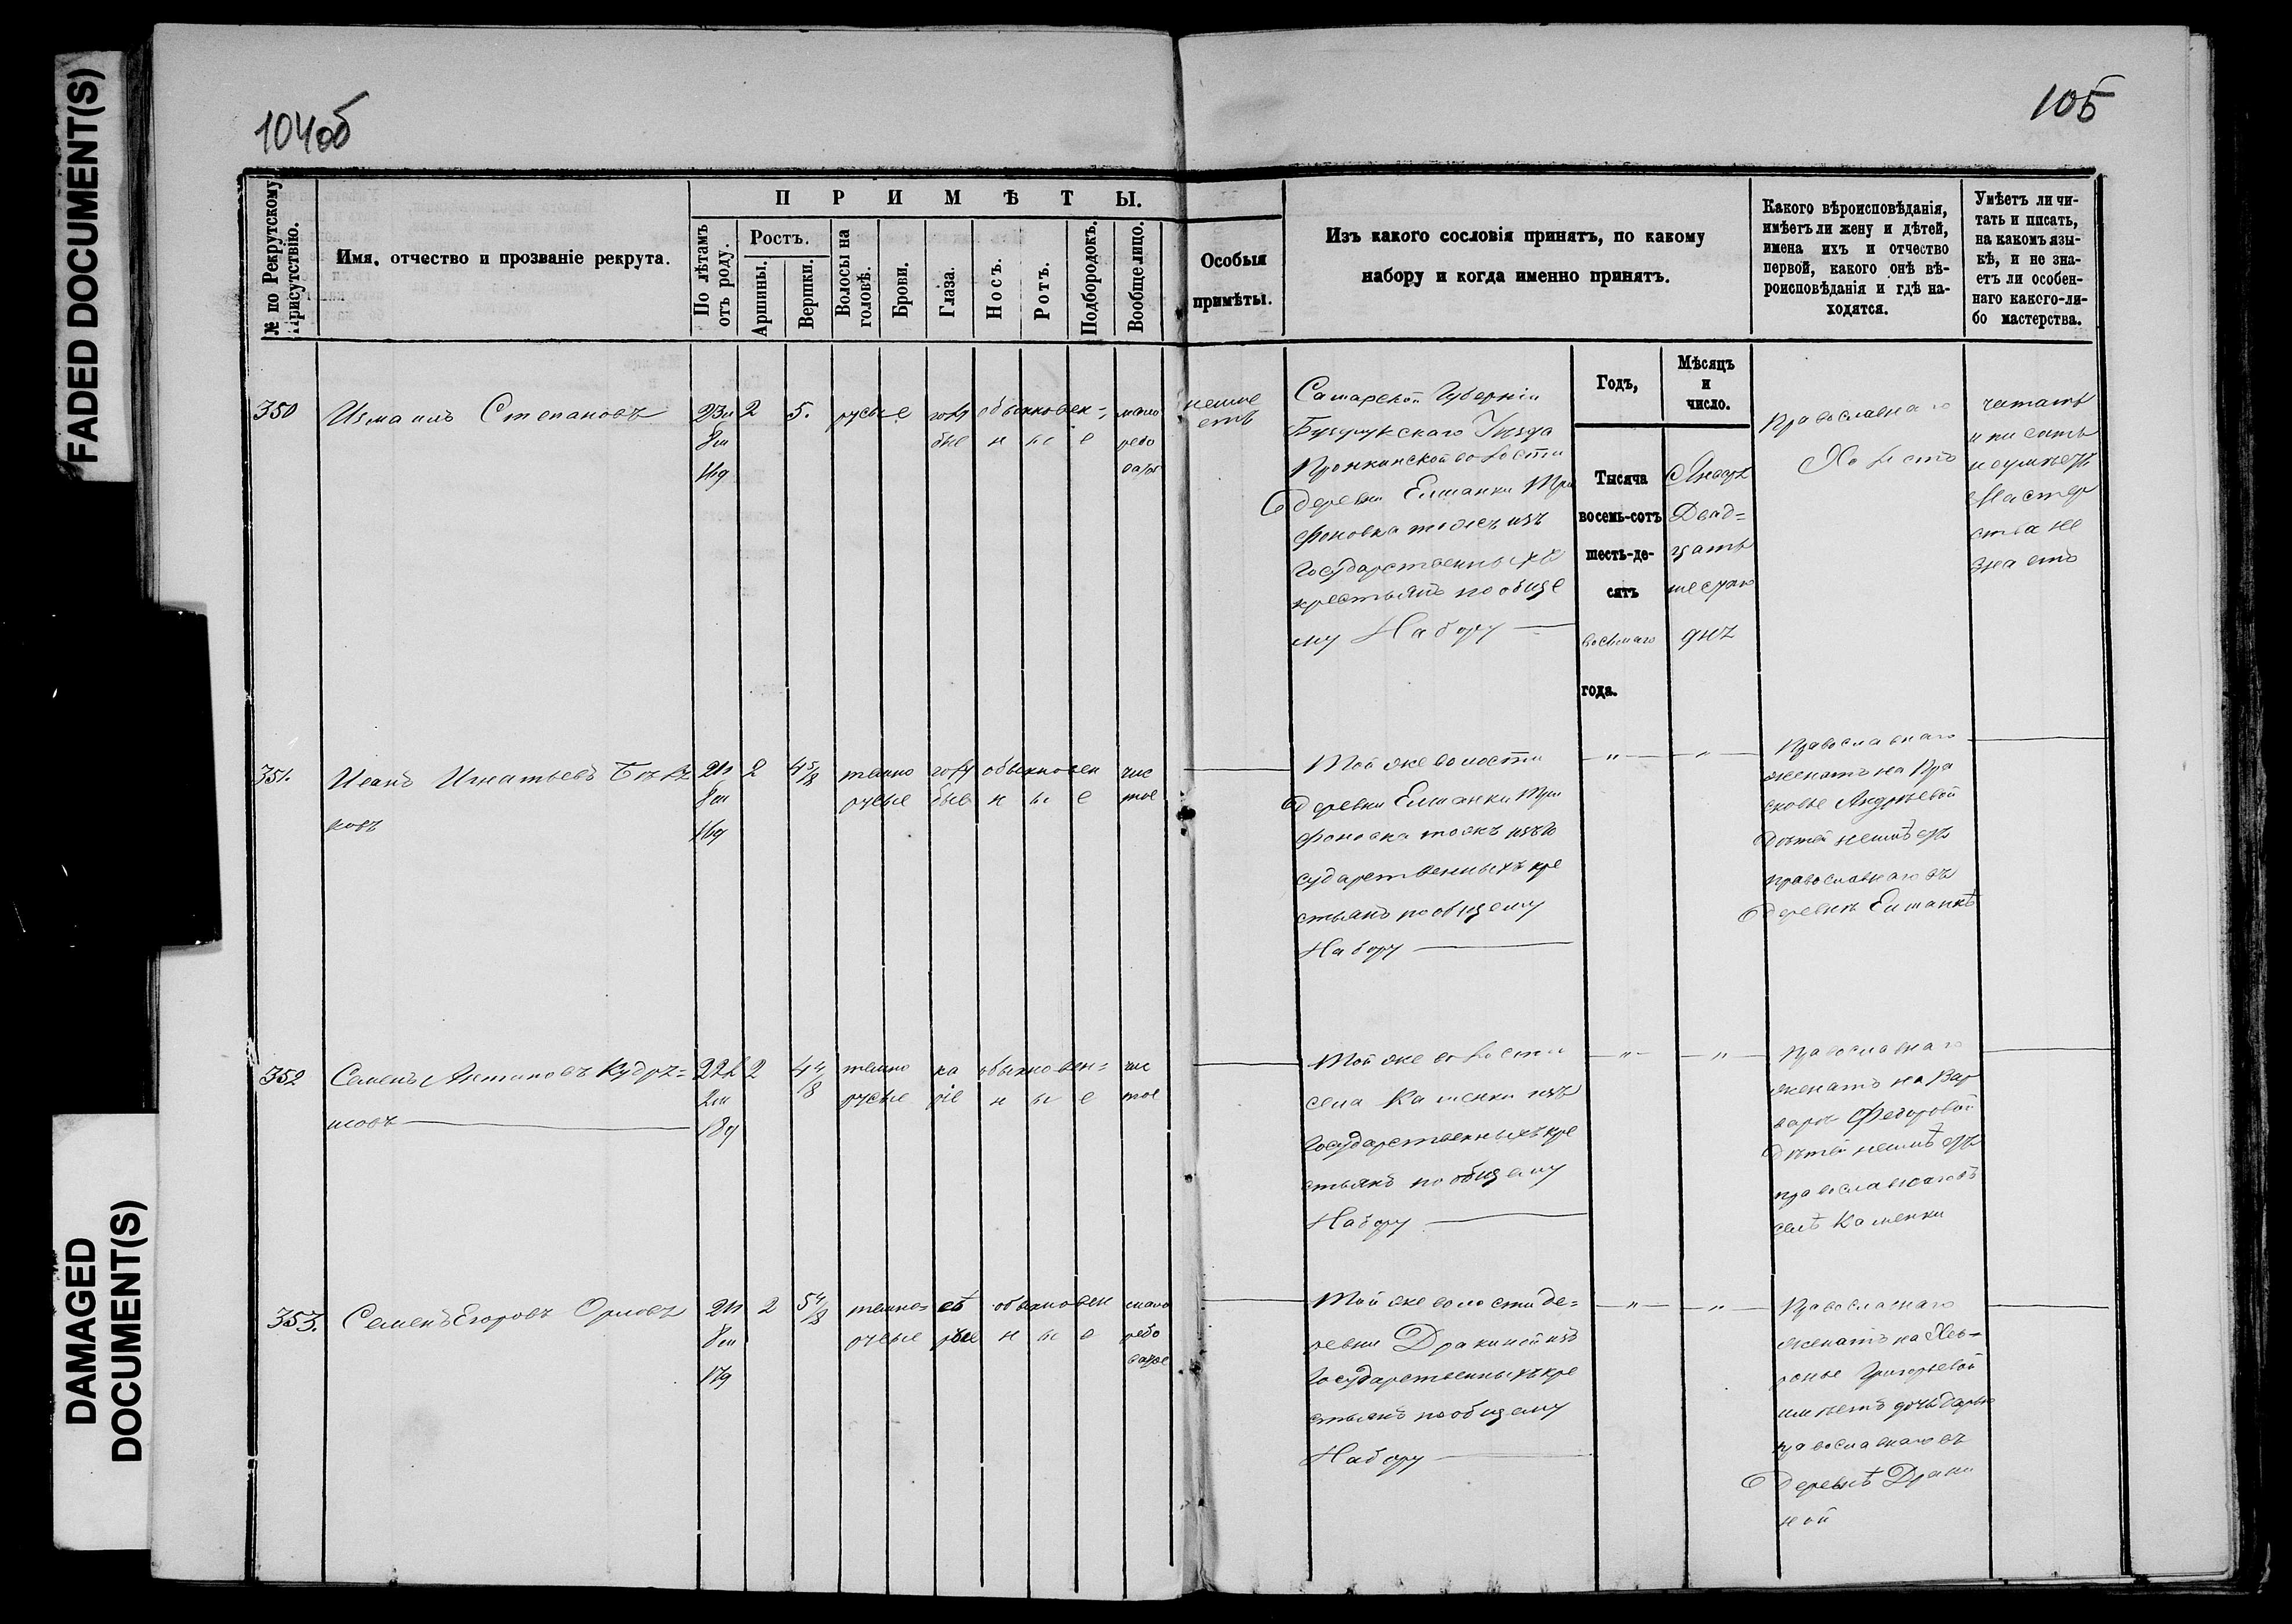 FADED DOCUMENT(S)
DAMAGED
DOCUMENT(S)
104об
105
№ по Рекрутскому
Присутствію.
Имя, отчество и прозваніе рекрута.
ПРИМѢТЫ.
По лѣтамъ
отъ роду.
Ростъ.
Аршины.
Вершки.
Волосы на
головѣ.
Брови.
Глаза.
Носъ.
Ротъ.
Подбородокъ.
Вообще лицо.
Особыя
примѣты.
Изъ какого сословія принятъ, по какому
набору и когда именно принятъ.
Какого вѣроисповѣданія,
имѣетъ ли жену и дѣтей,
имена ихъ и отчество
первой, какого онѣ вѣ-
роисповѣданія и гдѣ на-
ходятся.
Умѣетъ ли чи-
тать и писать,
на какомъ язы-
кѣ, и не зна-
етъ ли особен-
наго какого-ли-
бо мастерства.
Годъ,
Мѣсяцъ
и
число.
350
Измаилъ Степановъ
23л
8м
14д
2
5.
русые
голу
бые
обыкновен=
ные
мало
рябо
неиме
етъ
Самарской Губерніи
Бузулукскаго Уѣзда
Пронкинской волости
деревни Елшанки Три
фоновка тожъ изъ
Государственныхъ
крестьянъ по обще
му Набору
Тысяча
восемь-сотъ
шесть-де-
сятъ
восьмаго
года.
Январь
Двад=
цать
шестаго
дня
Православнаго
Холостъ
читать
и писать
неумѣетъ
Мастер
ства не
знаетъ
351.
Иванъ Игнатьевъ
ковъ
21л
8м
16д
2
4 5/8
темно
русые
голу
бые
обыкновен
ные
чис
тое
Той же волости
деревни Елшанки Три
фоновка тожъ изъ Го
сударственныхъ кре
стьянъ по общему
Набору
Православнаго
женатъ на Пра
сковье Андреевой
дѣтей неимѣетъ
православнаго въ
деревнѣ Елшанкѣ
352
Семенъ Антиповъ Кудря=
шовъ
22л
2м
18д
2
4 4/8
темно
русые
ка
ріе
обыкновен=
ные
чис
тое
Той же волости
села Каменки изъ
Государственныхъ кре
стьянъ по общему
Набору
православнаго
женатъ на Вар
варѣ Федоровой
дѣтей неимѣетъ
православнаго въ
селѣ Каменки
353.
Семенъ Егоровъ Орловъ
21л
8м
17д
2
5 4/8
темно=
русые
сѣ
рые
обыкновен
ные
мало
рябо
ватое
Той же волости де=
ревни Дракиной изъ
Государственныхъ кре
стьянъ по общему
Набору
Православнаго
женатъ на Хев-
ронье Григорьевой
имѣетъ дочь Дарью
православнаго въ
деревнѣ Драки
ной